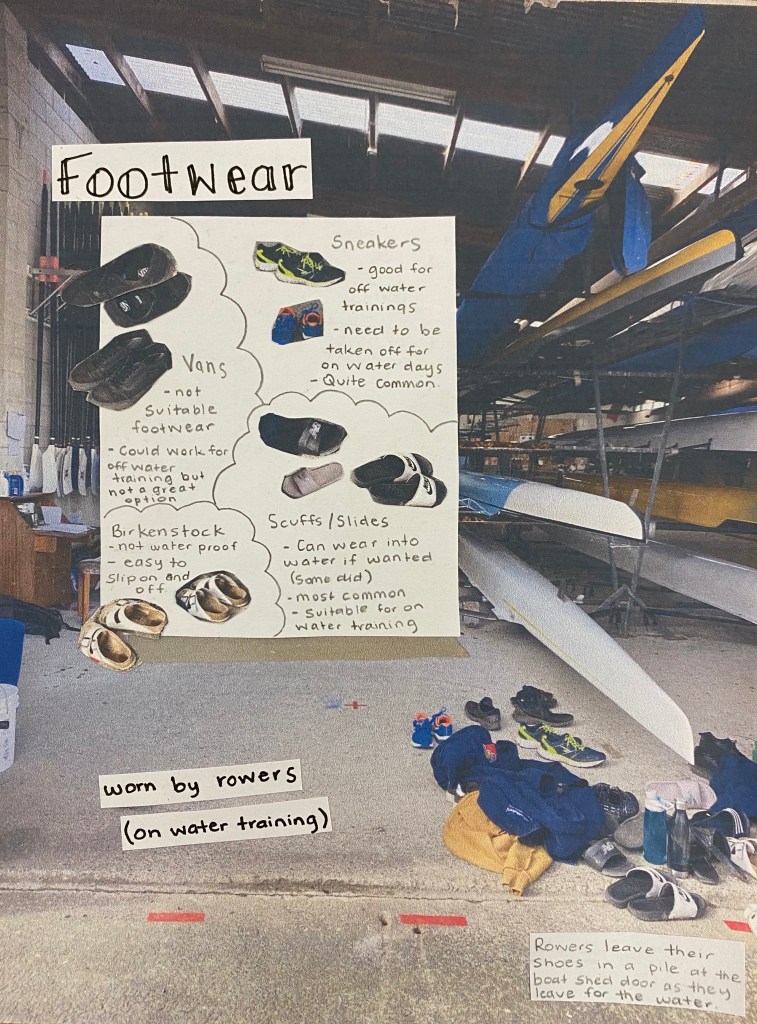 Footwear
Vans
- not
suitable
footwear
- Could work for
off water
training but
not a great
option
Sneakers
- good for
off water
trainings
- need to be
taken off for
on water days
- Quite common.
Birkenstock
- not water proof
- easy to
slip on and
off.
Scuffs/Slides
- Can wear into
water if wanted
(some did)
- most common
- Suitable for on
water training
worn by rowers
(on water training)
Rowers leave their
shoes in a pile at the
boat shed door as they
leave for the water.